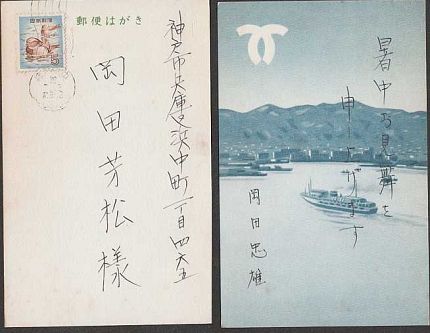 郵便はがき
5
神戸市兵庫区浜中町一丁目四六五
岡田芳松様
暑中お見舞を
申し上げます
岡田忠雄